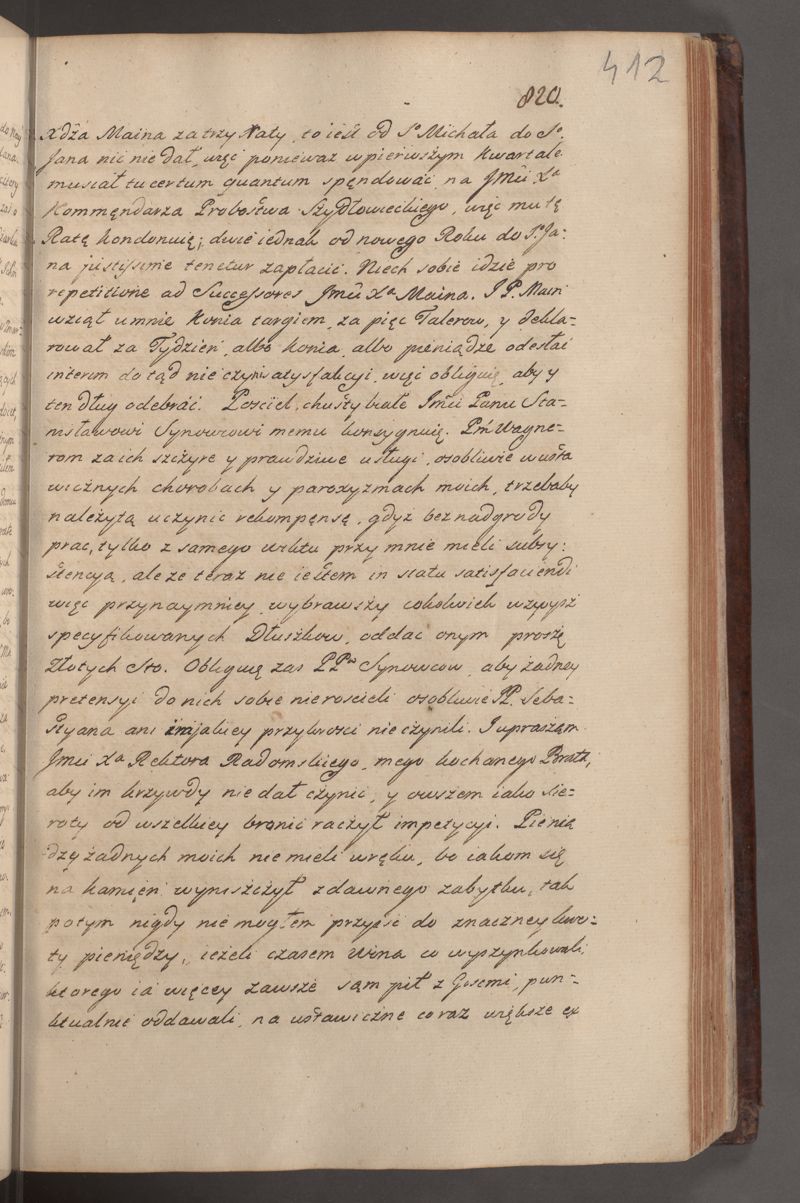 412
820.
Xdza Maina za trzy Raty, to iest od So Michała do So
Jana nic nie dał, więc ponieważ w pierwszym kwartale
musiał tu certum quantum spendować na Jmci Xa
Kommendarza Probostwa Szydłowieckiego, więc mu tę
Ratę kondonuię; dwie iednak od nowego Roku do So Ja=
na justissime tenetur zapłacić. Niech sobie idzie pro
repetitione ad Successores Jmci Xa Maina. J P. Main
wziął u mnie konia targiem za pięć Talerow, y dekla=
rował za Tydzień, albo konia, albo pieniądze odesłać
interim do tąd nie czyni satysfakcyi, więc obliguię, aby y
ten dług odebrać. Pościel, chusty białe Jmci Panu Sta=
nisławowi Synowcowi memu konsygnuię. Pm Wagne=
rom za ich szczyre y prawdziwe usługi, osobliwie w usta
wicznych chorobach y paroxyzmach moich, trzebaby
należytą uczynić rekompensę, gdyż bez nadgrody
prac, tylko z samego wiktu przy mnie mieli subsy=
stencyą, ale że teraz nie iestem in statu satisfaciendi
więc przynaymniey, wybrawszy cokolwiek wzwysz
specyfikowanych Dłuszkow, oddać onym proszę
złotych Sto. Obliguię zaś PPw Synowcow, aby żadney
pretensyi do nich sobie nierościeli osobliwie JP. Seba=
styana ani iakiey przykrości nie czynili. I upraszam
Jmci Xa Rektora Radomskiego, mego kochanego Brata,
aby im krzywdy nie dał czynić, y owszem iako sie=
roty od wszelkiey bronić raczył impetycyi. Pienię
dzy żadnych moich nie mieli w ręku, bo iakom się
na kamień wyniszczył z dawnego zabytku, tak
potym nigdy nie mogłem przyiść do znaczney kwo=
ty pieniędzy, ieżeli czasem Wina co wyszynkowali,
ktorego ia więcey zawsze sam pił z Gośćmi, pun=
ktualnie oddawali, na ustawiczne coraz większe ex